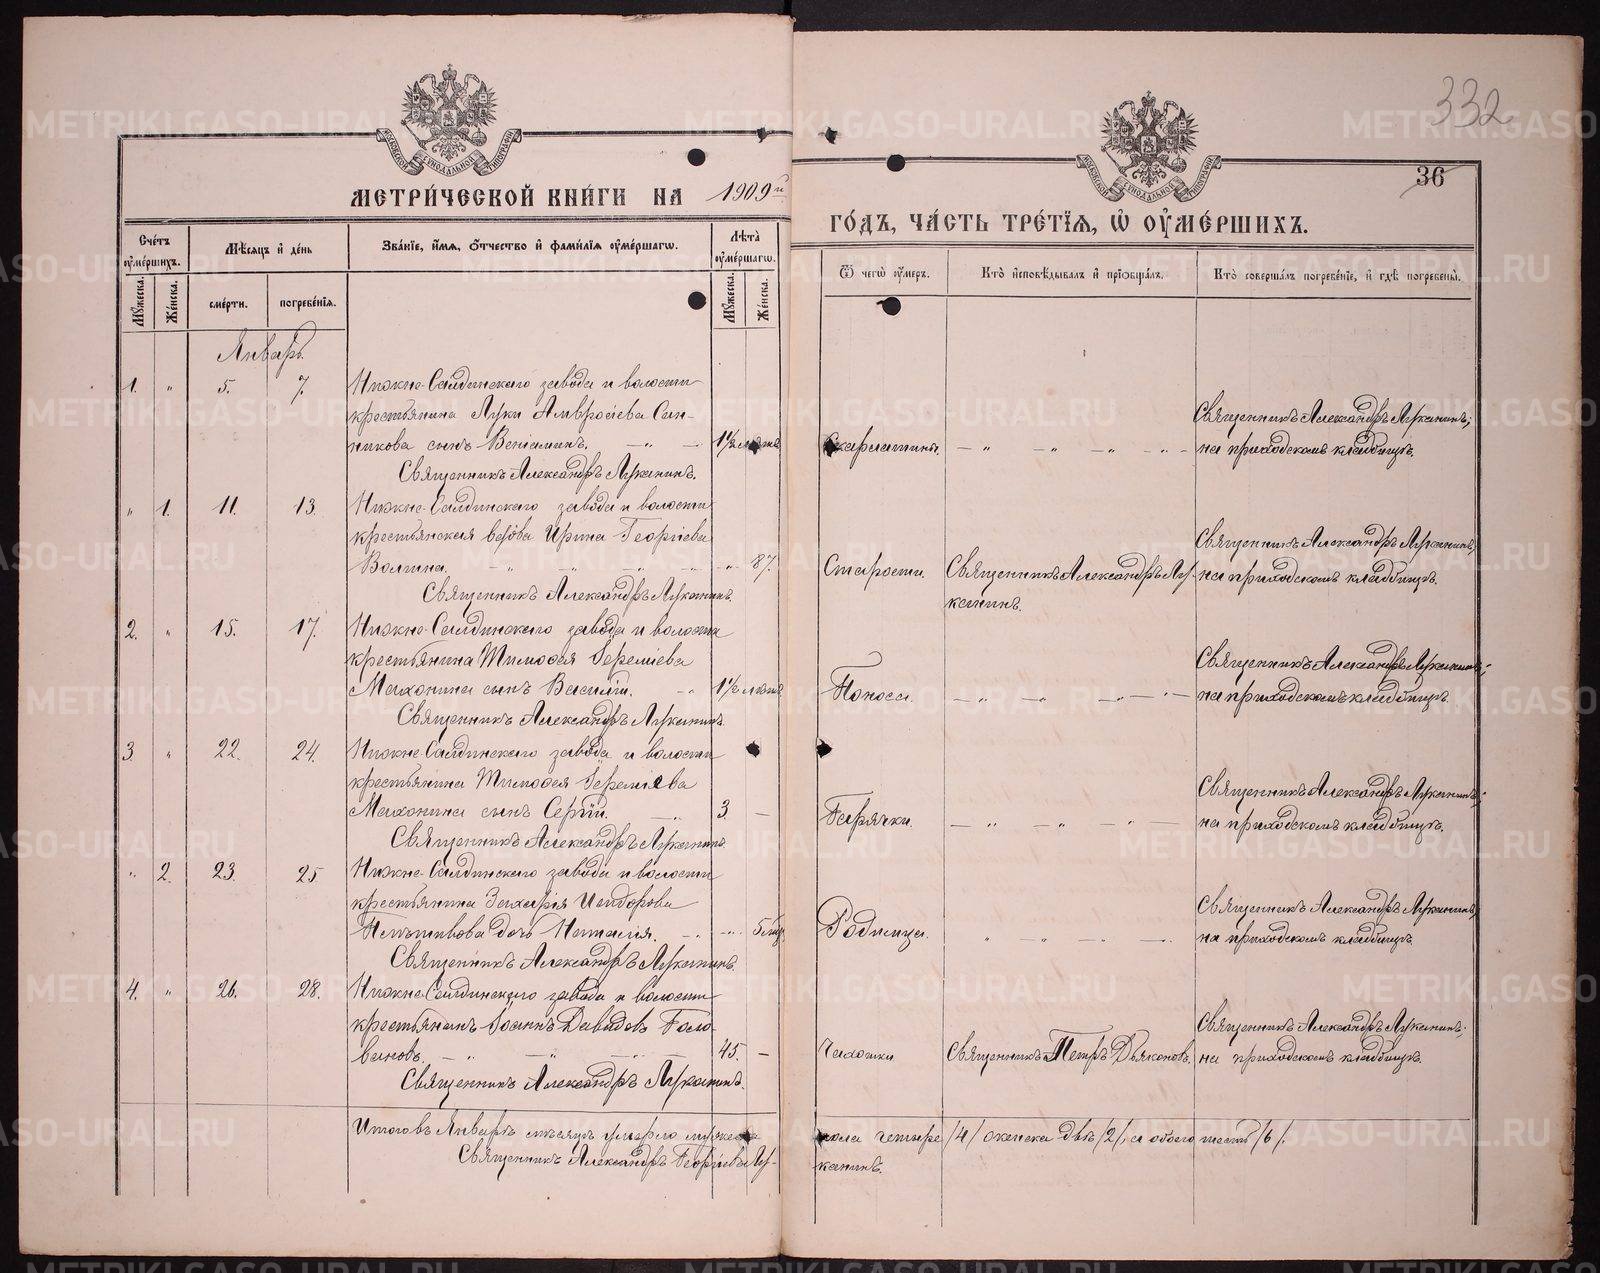 332
36
МЕТРИ́ЧЕСКОЙ КНИ́ГИ НА 1909й
ГО́ДЪ, ЧА́СТЬ ТРЕ́ТІѦ, Ѡ҆ ОУ҆МЕ́РШИХЪ.
Сче́тъ оу҆ме́ршихъ.
Мѣ́сѧцъ и҆ де́нь
Зва́нїе, и҆́мѧ, ѻ҆́тчество и҆ фами́лїѧ оу҆ме́ршагѡ.
Лѣ́та оу҆ме́ршагѡ.
Ѿ чегѡ̀ оу҆́меръ.
Кто̀ и҆сповѣ́дывалъ и҆ прїобща́лъ.
Кто̀ соверша́лъ погребе́нїе, и҆ гдѣ̀ погребены̀.
Мꙋ́жеска.
Же́нска.
сме́рти.
погребе́нїѧ.
Мꙋ́жеска.
Же́нска.
Январь.
1. " 5. 7. Нижне-Салдинскаго завода и волости
крестьянина Луки Амвросіева Син-
никова сынъ Веніаминъ. — " — 1½ лѣтъ
Священникъ Александръ Луканинъ.
Скарлатины. — " — " — " — " —
Священникъ Александръ Луканинъ;
на приходскомъ кладбищѣ.
" 1. 11. 13. Нижне-Салдинскаго завода и волости
крестьянская вдова Ирина Георгіева
Волгина. " 87.
Священникъ Александръ Луканинъ.
Старости. Священникъ Александръ Лу-
канинъ.
Священникъ Александръ Луканинъ;
на приходскомъ кладбищѣ.
2. " 15. 17. Нижне-Салдинскаго завода и волости
крестьянина Тимофея Іереміева
Махонина сынъ Василій. — " 1½ лѣтъ
Священникъ Александръ Луканинъ.
Поноса. — " — " — " — " —
Священникъ Александръ Луканинъ;
на приходскомъ кладбищѣ.
3 " 22. 24. Нижне-Салдинскаго завода и волости
крестьянина Тимофея Іереміева
Махонина сынъ Сергій. — " — 3. —
Священникъ Александръ Луканинъ.
Горячки. — " — " — " —
Священникъ Александръ Луканинъ;
на приходскомъ кладбищѣ.
" 2. 23. 25 Нижне-Салдинскаго завода и волости
крестьянина Захарія Исидорова
дочь Наталія. — " — " 5 мѣс.
Священникъ Александръ Луканинъ.
Родимца. " — " — " — " —
Священникъ Александръ Луканинъ;
на приходскомъ кладбищѣ.
4. " 26. 28. Нижне-Салдинскаго завода и волости
крестьянинъ Іоаннъ Давидовъ Голо-
вановъ. — " — " — " — 45. —
Священникъ Александръ Луканинъ.
Чахотки Священникъ Петръ Дьяконовъ.
Священникъ Александръ Луканинъ;
на приходскомъ кладбищѣ.
Итого въ Январѣ мѣсяцѣ умерло мужеска
пола четыре /4/ женска двѣ /2/, а обоего шесть /6/.
Священникъ Александръ Георгіевъ Лу-
канинъ.
METRIKI.GASO-URAL.RU